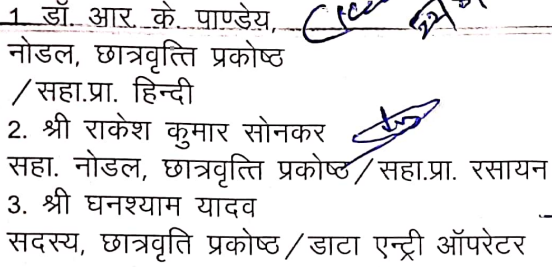 1. डॉ. आर. के. पाण्डेय,
नोडल, छात्रवृत्ति प्रकोष्ठ
/सहा.प्रा. हिन्दी
2. श्री राकेश कुमार सोनकर
सहा. नोडल, छात्रवृत्ति प्रकोष्ठ/सहा.प्रा. रसायन
3. श्री घनश्याम यादव
सदस्य, छात्रवृति प्रकोष्ठ/डाटा एन्ट्री ऑपरेटर